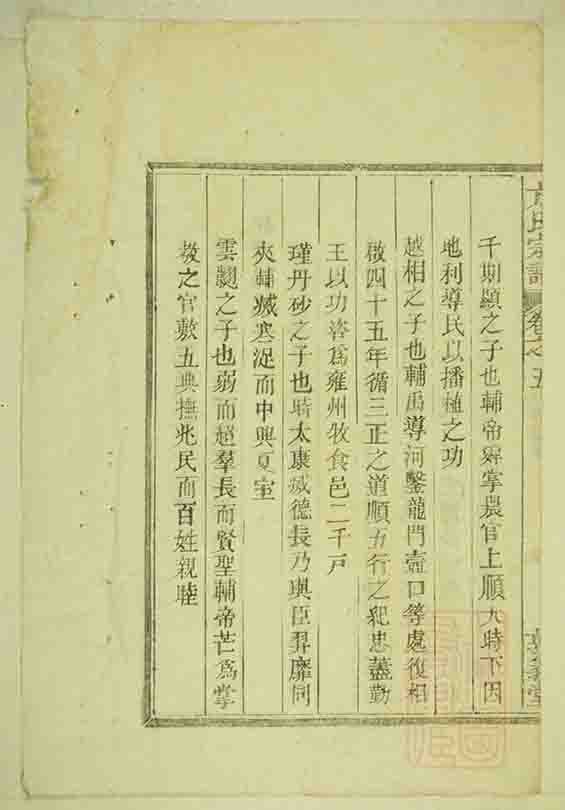 氏宗譜 卷之五
千期顯之子也輔帝舜掌農官上順天時下因
地利導民以播植之功
越相之子也輔禹導河鑿龍門壺口等處復相
啟四十五年循三正之道順五行之紀忠藎勤
王以功咨爲雍州牧食邑二千戸
瑾丹砂之子也時太康滅德長乃與臣羿靡同
夾輔滅寒浞而中興夏室
雲翾之子也弱而超羣長而賢聖輔帝芒爲掌
教之官敷五典撫兆民而百姓親睦